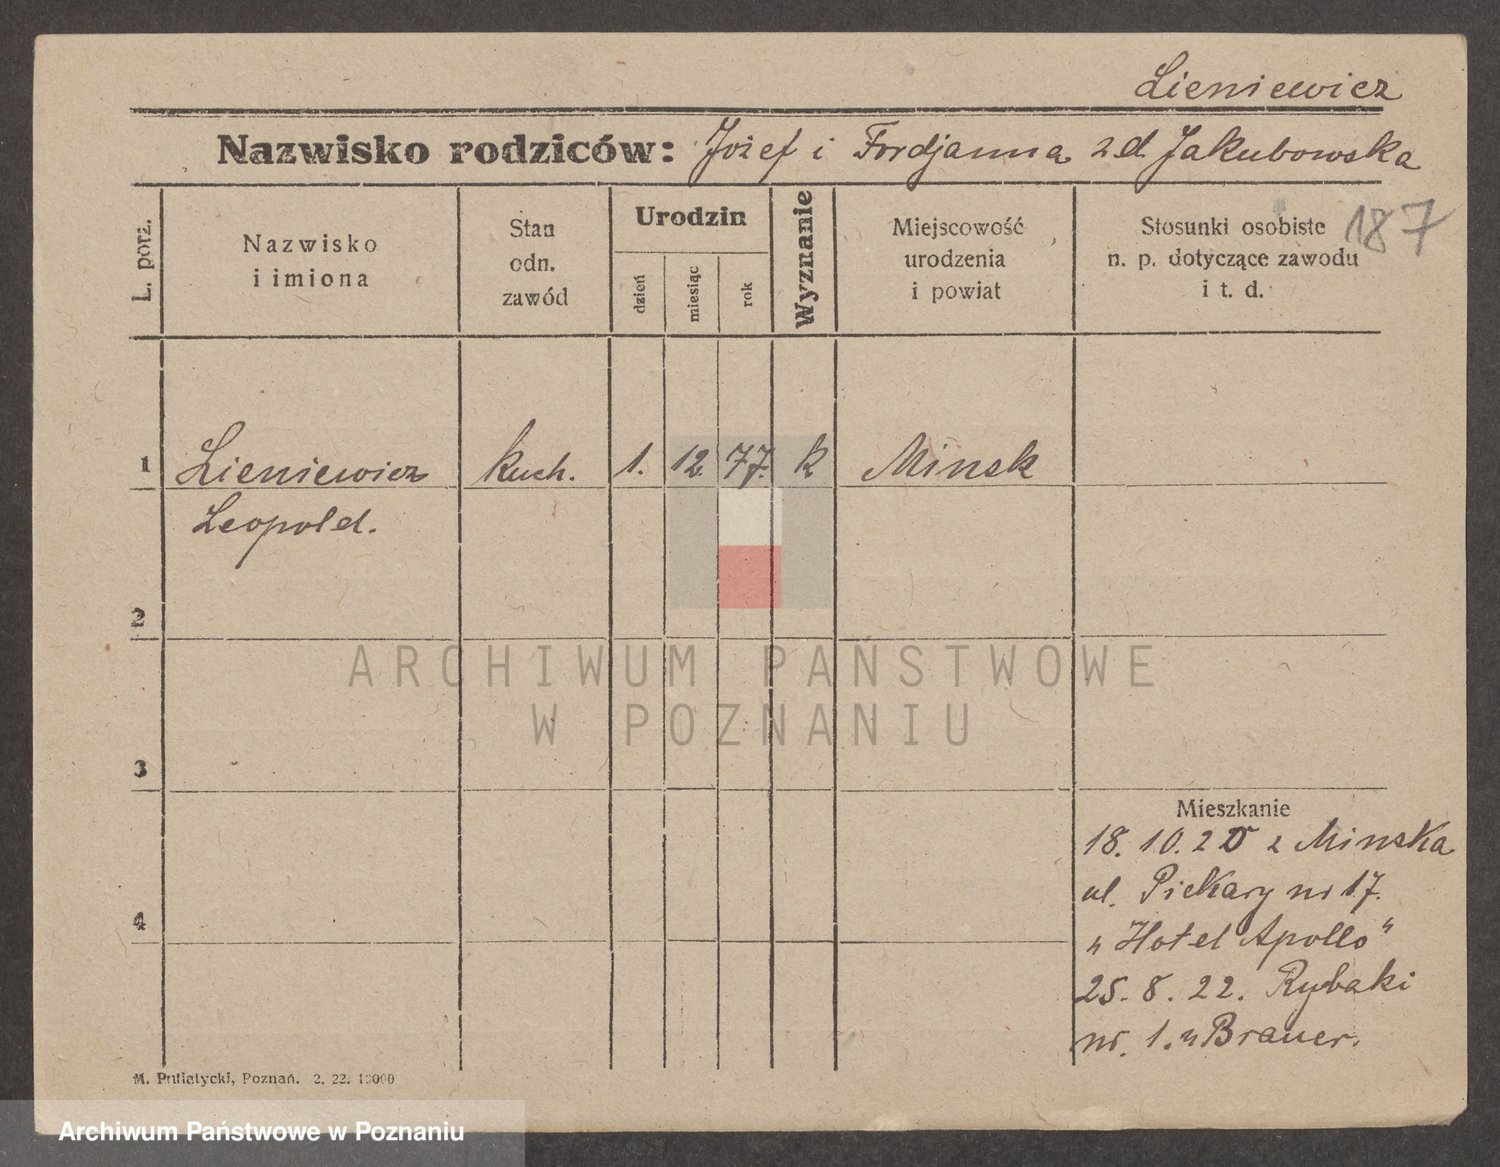 Lieniewicz
Nazwisko rodziców: Józef i Fordjanna z d. Jakubowska
187
L. porz.
Nazwisko
i imiona
Stan
odn.
zawód
Urodzin
dzień
miesiąc
rok
Wyznanie
Miejscowość
urodzenia
i powiat
Stosunki osobiste
n. p. dotyczące zawodu
i t. d.
1 Lieniewicz kuch. 1. 12. 77. k Minsk
Leopold.
2
ARCHIWUM PAŃSTWOWE
W POZNANIU
3
Mieszkanie
18. 10. 20 z Minska
ul. Piekary nr 17.
"Hotel Apollo"
4
25. 8. 22. Rybaki
nr. 1. u Brauer.
M. Putiatycki, Poznań. 2. 22. 10000
Archiwum Państwowe w Poznaniu